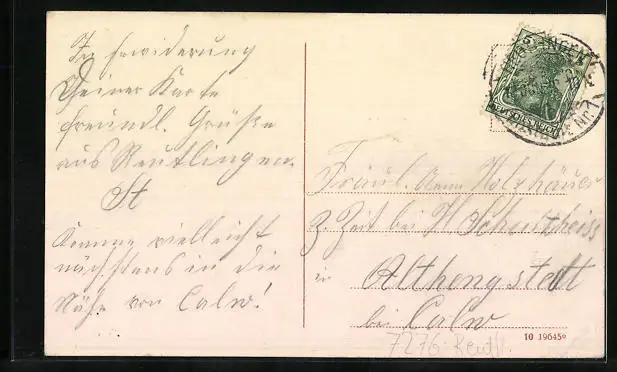 In Erwiderung
Deiner Karte
freundl. Grüße
aus Reutlingen.
St
Komme vielleicht
nächstens in die
Nähe von Calw!
DEUTSCHES REICH
Fräul. Anna Holzhäuer
z. Zeit bei H. Schultheiss
in Althengstedt
bei Calw
10 19645⁰
7276 Reutl.